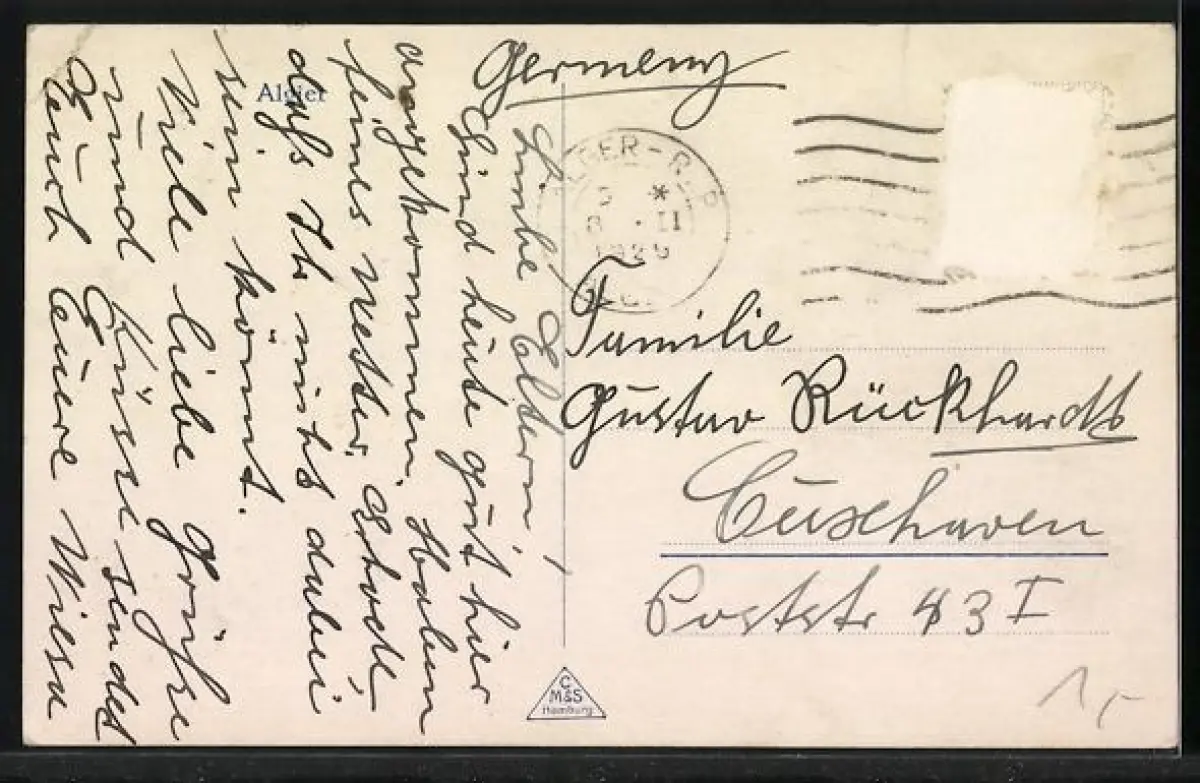 Germany
Algier
Liebe Eltern!
Sind heute gut hier
angekommen. Haben
feines Wetter. Schade
dass Ihr nicht dabei
sein könnt.
Viele liebe Grüsse
und Küsse sendet
Euch Eure
ALGER-R.P
*
8 · II
1929
Familie
Gustav Rückhardt
Cuxhaven
Poststr 43 I
C
M&S
Hamburg